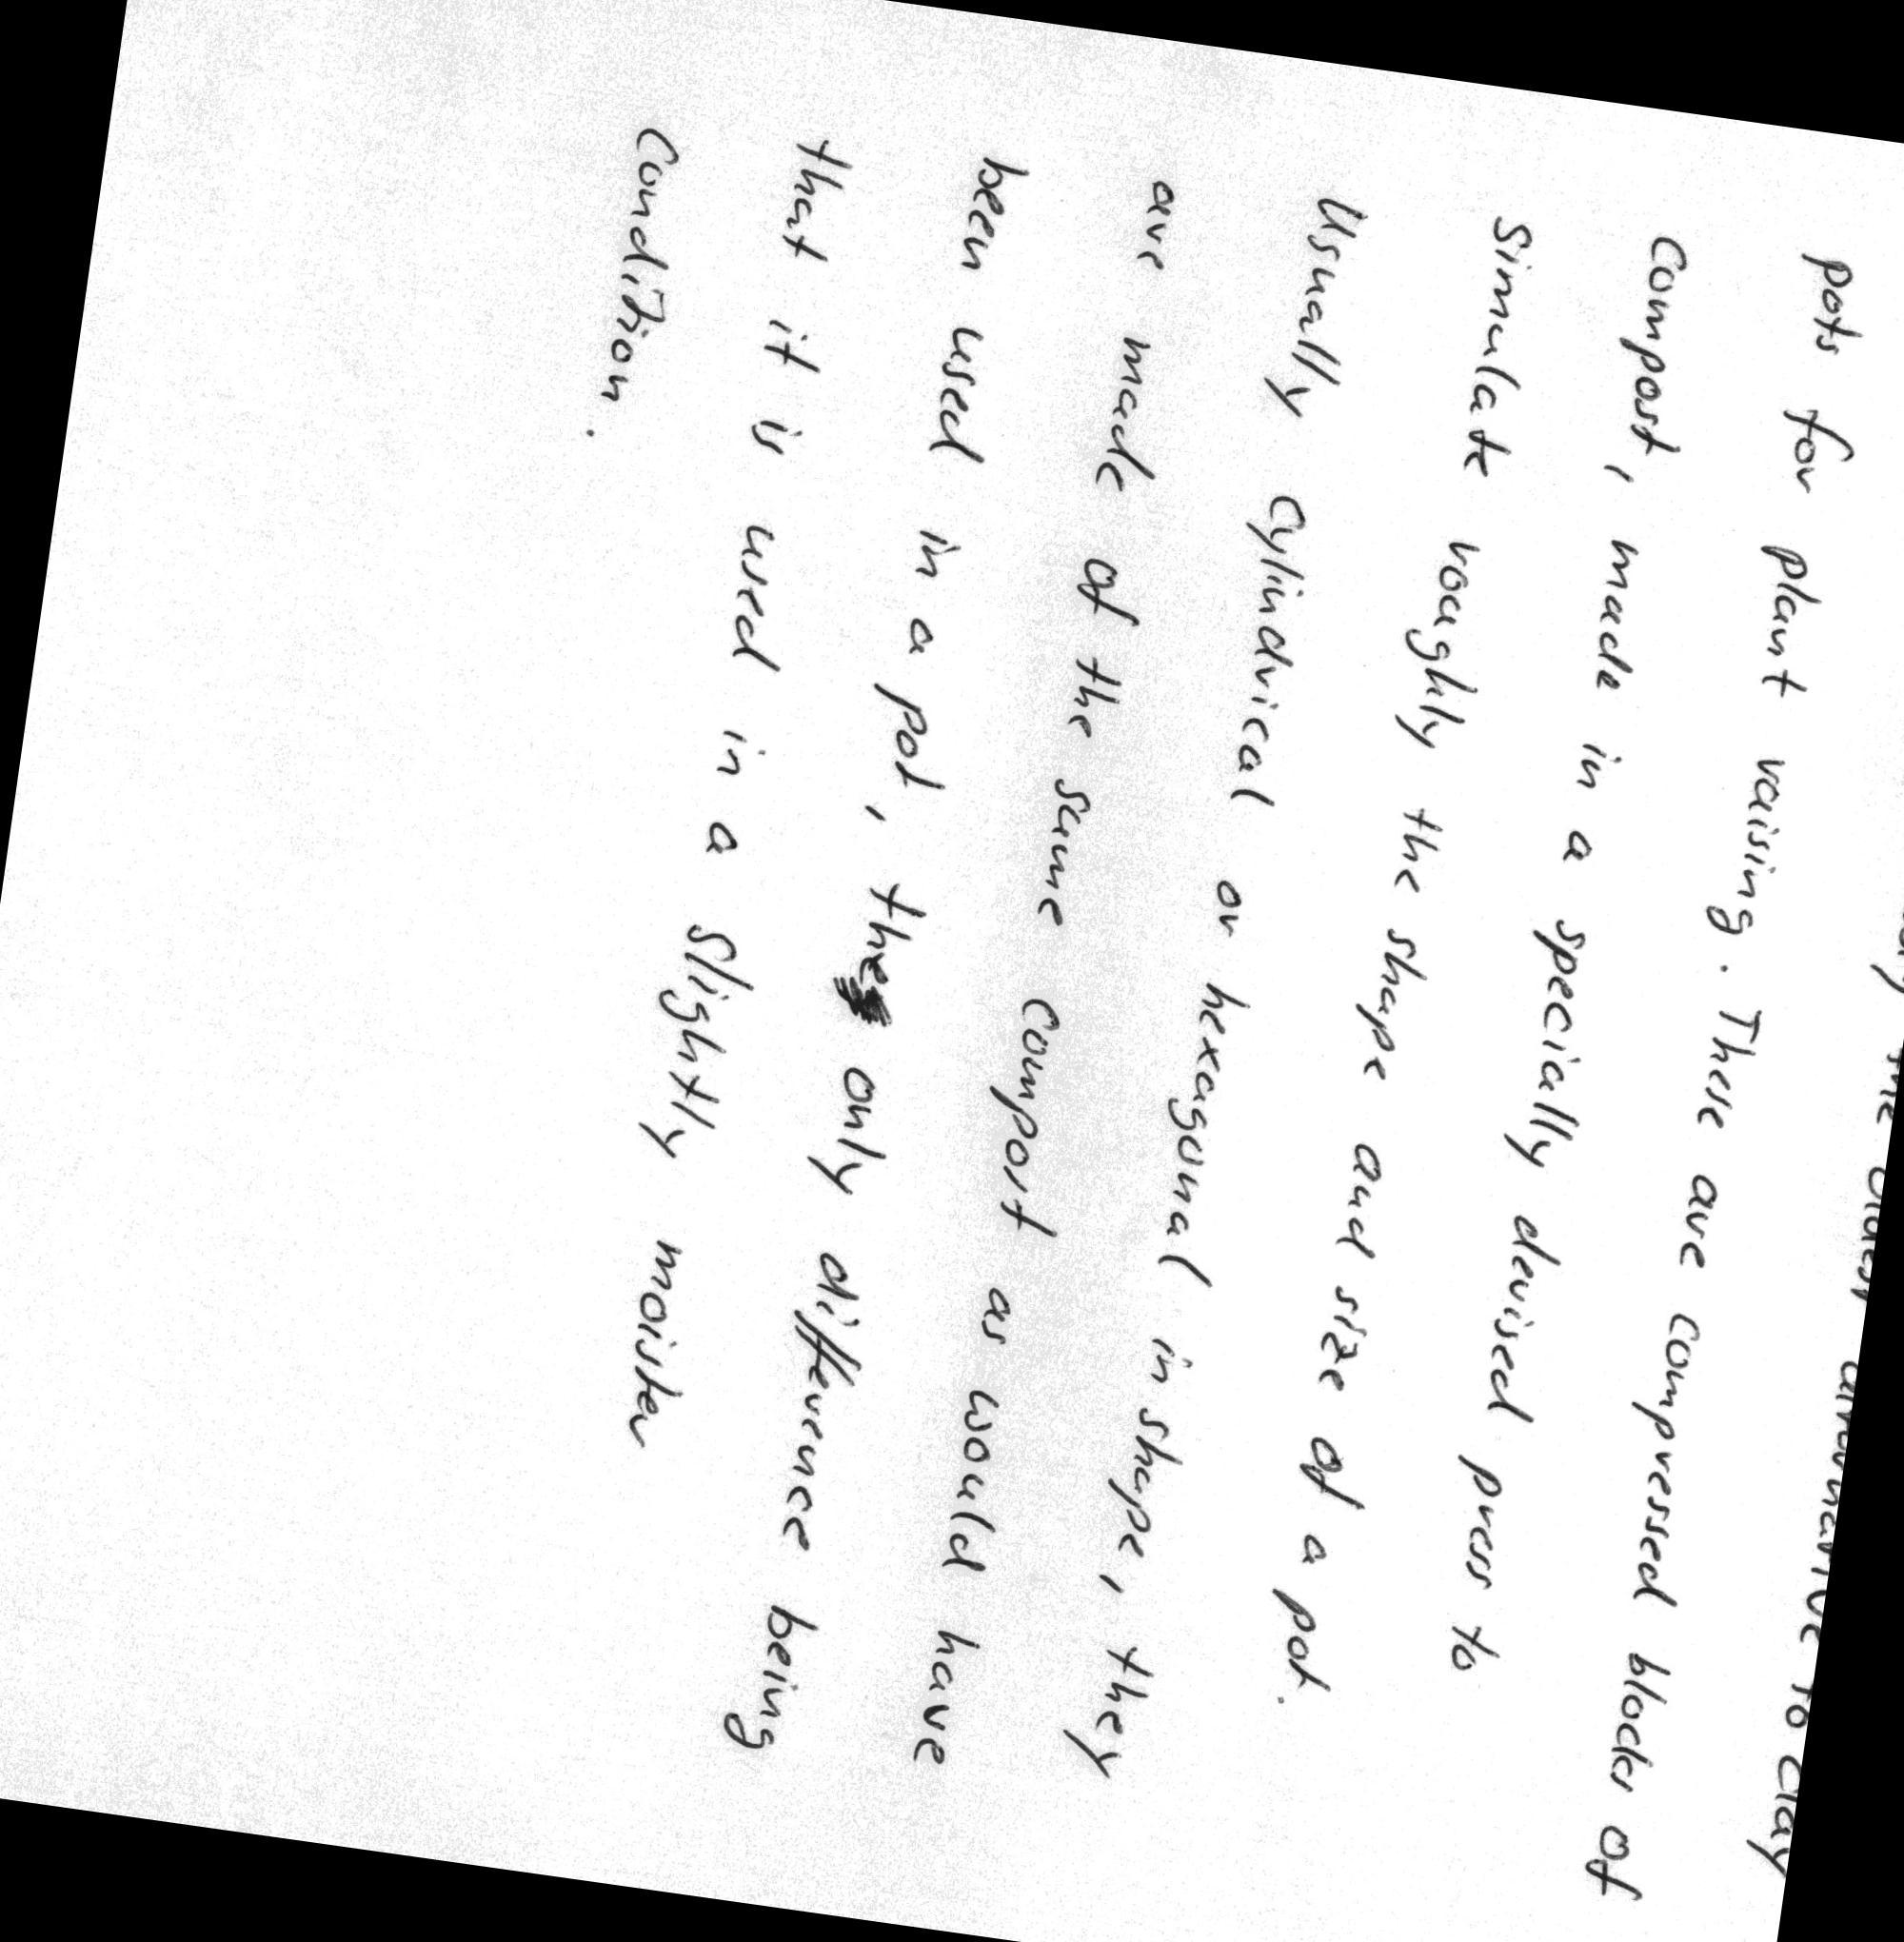 the oldest alternative to clay
pots for plant raising. These are compressed blocks of
compost, made in a specially devised press to
simulate roughly the shape and size of a pot.
Usually cylindrical or hexagonal in shape, they
are made of the same compost as would have
been used in a pot, the only difference being
that it is used in a slightly moister
condition.